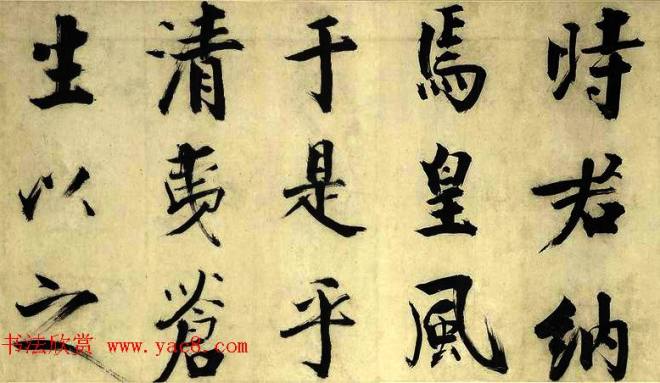 時若納
焉皇風
于是乎
清夷蒼
生以之
书法欣赏 www.yac8.com